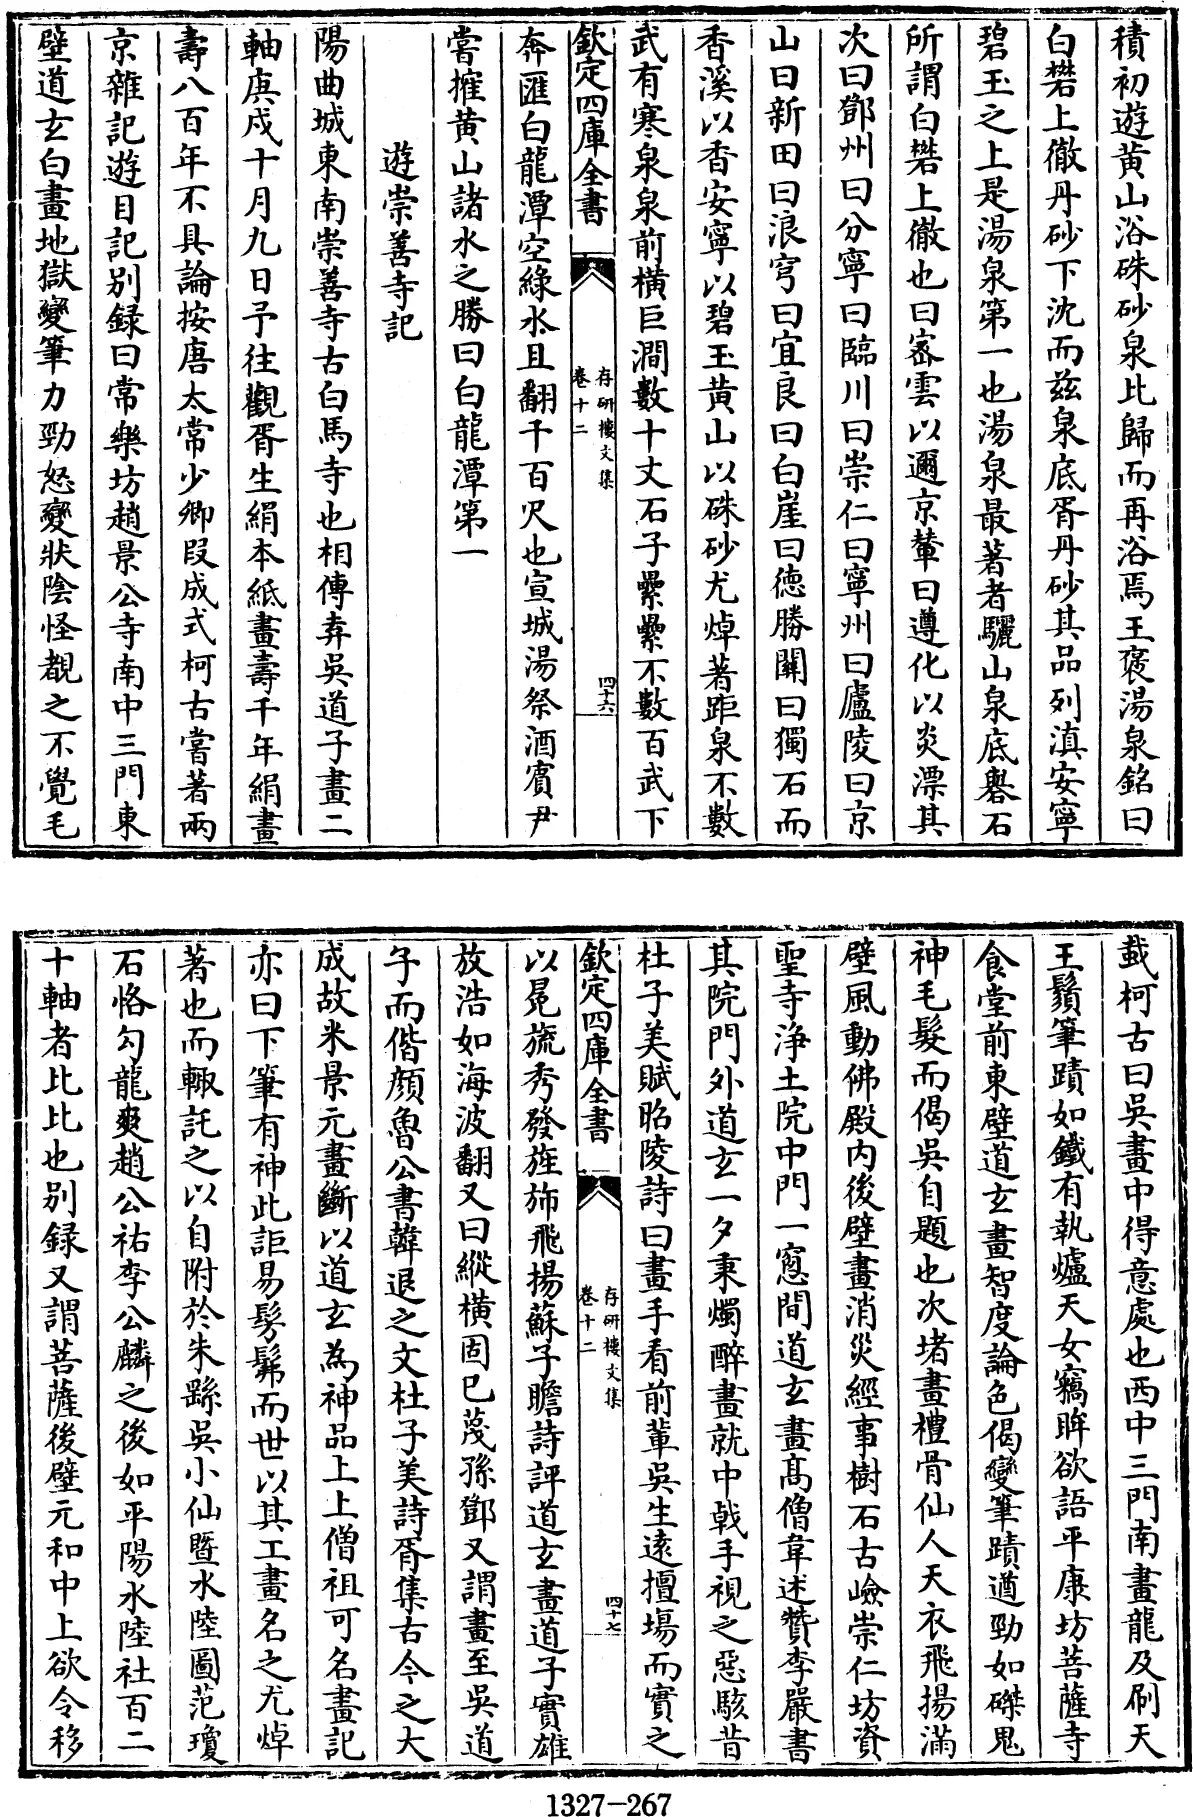 積初遊黃山浴硃砂泉比歸而再浴焉王褒湯泉銘曰
白礬上徹丹砂下沈而茲泉底胥丹砂其品列滇安寧
碧玉之上是湯泉第一也湯泉最著者驪山泉底礬石
所謂白礬上徹也曰密雲以邇京輦曰遵化以炎漂其
次曰鄧州曰分寧曰臨川曰崇仁曰寧州曰廬陵曰京
山曰新田曰浪穹曰宜良曰白崖曰德勝關曰獨石而
香溪以香安寧以碧玉黃山以硃砂尤焯著距泉不數
武有寒泉泉前橫巨澗數十丈石子纍纍不數百武下
欽定四庫全書
存研樓文集
卷十二
四十六
奔匯白龍潭空綠水且翻千百尺也宣城湯祭酒賓尹
嘗搉黃山諸水之勝曰白龍潭第一
遊崇善寺記
陽曲城東南崇善寺古白馬寺也相傳弆吳道子畫二
軸庚戍十月九日予往觀胥生絹本紙畫壽千年絹畫
壽八百年不具論按唐太常少卿段成式柯古嘗著兩
京雜記遊目記別録曰常樂坊趙景公寺南中三門東
壁道玄白畫地獄變筆力勁怒變狀陰怪覩之不覺毛
戴柯古曰吳畫中得意處也西中三門南畫龍及刷天
王鬚筆蹟如鐵有執爐天女竊眸欲語平康坊菩薩寺
食堂前東壁道玄畫智度論色偈變筆蹟遒勁如磔鬼
神毛髮而偈吳自題也次堵畫禮骨仙人天衣飛揚滿
壁風動佛殿内後壁畫消災經事樹石古嶮崇仁坊資
聖寺淨土院中門一窻間道玄畫髙僧韋述贊李嚴書
其院門外道玄一夕秉燭醉畫就中戟手視之惡駭昔
杜子美賦昭陵詩曰畫手看前輩吳生遠擅場而實之
欽定四庫全書
存研樓文集
卷十二
四十七
以冕旒秀發旌斾飛揚蘇子瞻詩評道玄畫道子實雄
放浩如海波翻又曰縱橫固已蔑孫鄧又謂畫至吳道
子而偕顏魯公書韓退之文杜子美詩胥集古今之大
成故米景元畫斷以道玄為神品上上僧祖可名畫記
亦曰下筆有神此詎易髣髴而世以其工畫名之尤焯
著也而輙託之以自附於朱繇吳小仙暨水陸圖范瓊
石恪勾龍爽趙公祐李公麟之後如平陽水陸社百二
十軸者比比也別録又謂菩薩後壁元和中上欲令移
1327-267